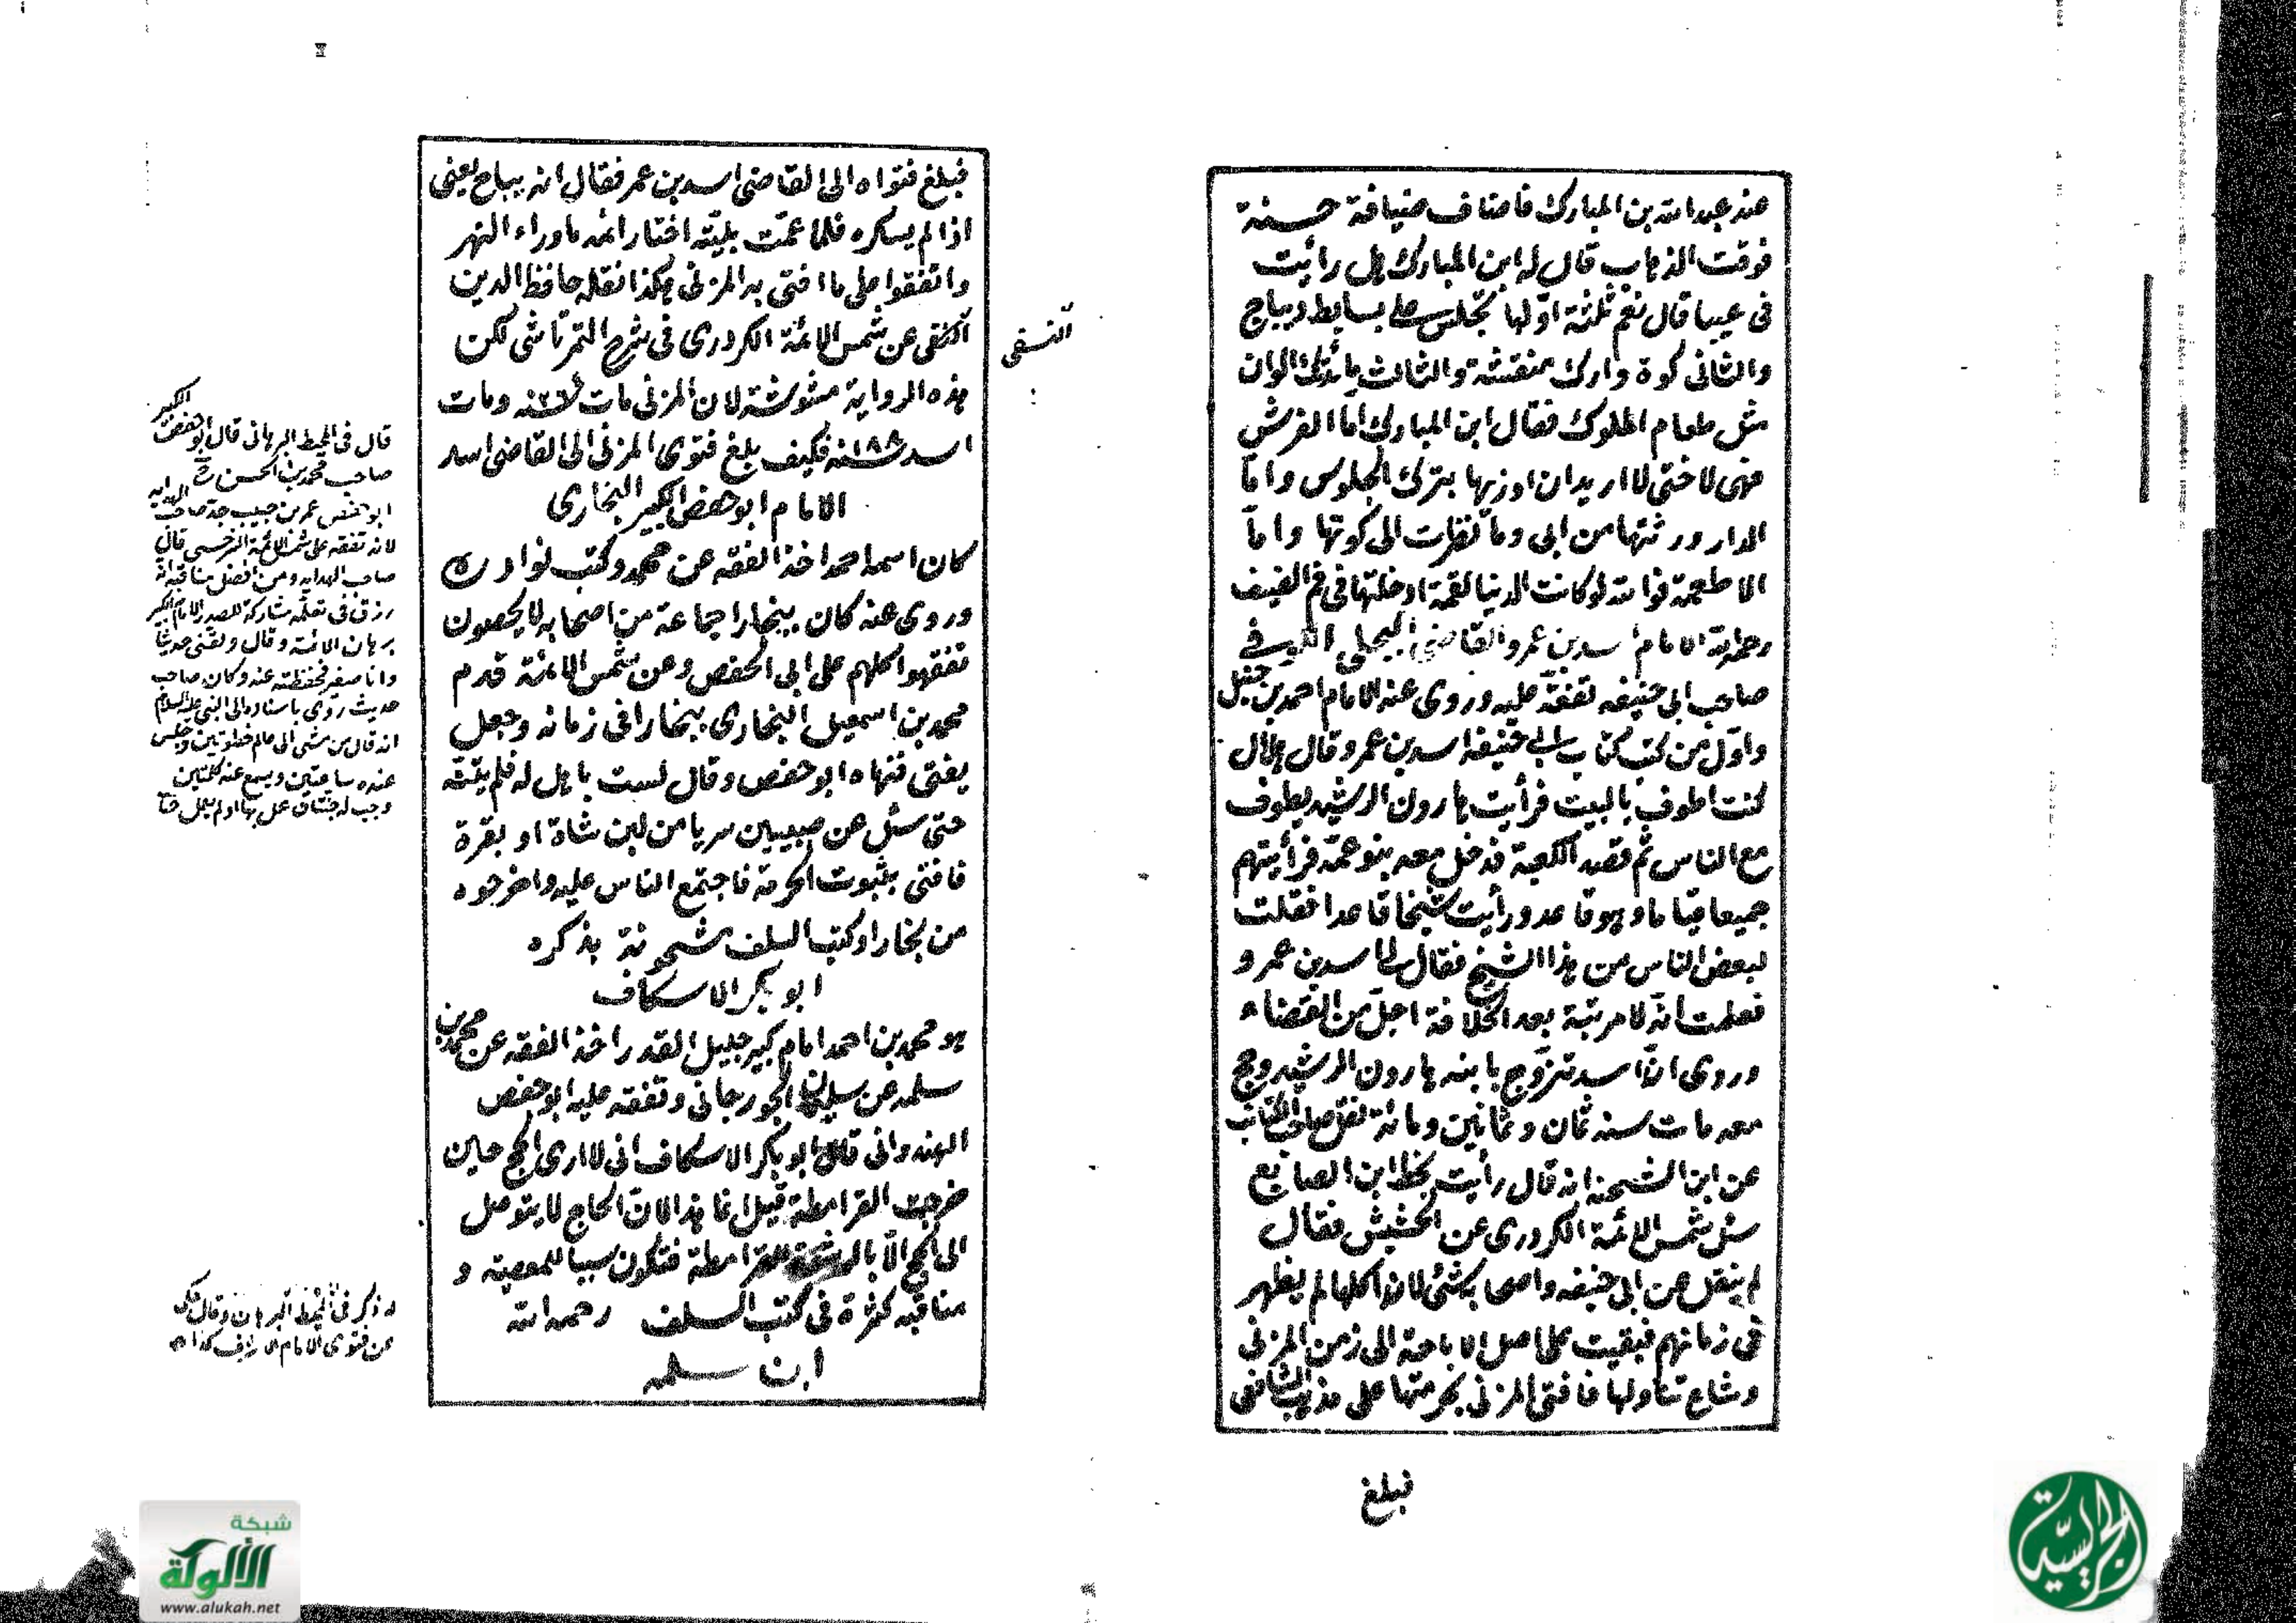 عند عبد الله بن المبارك فاضاف ضيافة حسنة
فوقت الذهاب قال له ابن المبارك هل رأيت
فى عيبا قال نعم ثلثة اوّلها تجلس على بسايط ديباج
والثانى كوة دارك منقشة والثالث مأيدتك الوان
مثل طعام الملوك فقال ابن المبارك امّا الفرش
فهى لاختى لا اريد ان اوزيها بترك الجلوس وامّا
الدار ورثتها من ابى وما نظرت الى كوتها وامّا
الاطعمة فوالله لوكانت الدنيا لقمة ادخلتها فى فم الضيف
رحمه الله الامام اسد بن عمرو القاضى البجلى الكوفى
صاحب ابى حنيفه تفقّه عليه وروى عنه الامام احمد بن حنبل
واوّل من كتب كتاب ابى حنيفه اسد بن عمرو قال هلال
كنت اطوف بالبيت فرأيت هارون الرشيد يطوف
مع الناس ثم قصد الكعبة فدخل معه بنو عمّه فرأيتهم
جميعا قياما وهو قاعد ورأيت شيخا قاعدا فقلت
لبعض الناس من هذا الشيخ فقال لى اسد بن عمرو
فعلمت انّه لا مرتبة بعد الخلافة اجلّ من القضاء
وروى انّ اسد تزوّج بابنه هارون الرشيد وحج
معه مات سنه ثمان وثمانين ومائة نقل صاحب الكتاب
عن ابن الشحنة انه قال رأيت بخط ابن الصايغ
سئل شمس الائمة الكردرى عن الحشيش فقال
لم ينقل عن ابى حنيفه واصحابه شئ لان اكلها لم يظهر
فى زمانهم فبقيت على اصل الاباحة الى زمن المزنى
وشاع تناولها فافتى المزنى بحرمتها على مذهب الشافعى
فبلغ
فبلغ فتواه الى القاضى اسد بن عمر فقال انه يباح يعنى
اذا لم يسكره فلما عمّت بليّته اختار ائمه ماوراء النهر
واتفقوا على ما افتى به المزنى هكذا نقله حافظ الدين
النسفى
عن شمس الائمة الكردرى فى شرح التمرتاشى لكن
هذه الرواية مشوشة لان المزنى مات سنه ومات
اسد سنه ١٨٨ فكيف بلغ فتوى المزنى الى القاضى اسد
الامام ابو حفض الكبير البخارى
كان اسمه احمد اخذ الفقه عن محمد وكتب نوادره
وروى عنه كان ببخارا جماعة من اصحابه لا يحصون
تفقهوا كلهم على ابى الحفص وعن شمس الائمة قدم
محمد بن اسمعيل البخارى ببخارا فى زمانه وجعل
يفتى فنهاه ابو حفص وقال لست باهل له فلم ينته
حتى سئل عن صبيين سربا من لبن شاة او بقرة
فافتى بثبوت الحرمة فاجتمع الناس عليه واخرجوه
من بخارا وكتب السلف مشحونة بذكره
ابو بكر الاسكاف
هو محمد بن احمد امام كبير جليل القدر اخذ الفقه عن محمد بن
سلمه عن سليمان الجورجانى وتفقه عليه ابو حفص
الهندوانى قال ابو بكر الاسكاف انى لا ارى الحج حين
خرجت القرامطة قيل انما هذا لانّ الحاج لا يتوصل
الى الحج الّا بالرشوة للقرامطة فتكون سببا للمعصيه و
مناقبه كثرة فى كتب السلف رحمه الله
ابن سلمه
قال فى المحيط البرهانى قال ابو حفص الكبير
صاحب محمد بن الحسن
ابو حفص عمر بن حبيب جد صاحب الهدايه
لانه تفقه على شمس الائمة السرخسى قال
صاحب الهدايه ومن افضل مناقبه انه
رزق فى تعلّمه مشاركة للصدر الامام الكبير
برهان الائمه وقال ولقننى حديثا
وانا صغير فحفظته عنه وكان صاحب
حديث روى باسناده الى النبى عليه السلام
انه قال من مشى الى عالم خطوتين وجلس
عنده ساعتين ويسمع عنه كلمتين
وجب له جنتان عمل بها او لم يعمل
ذكر فى المحيط البرهان وقال
من فتوى الامام
شبكة
الألوكة
www.alukah.net